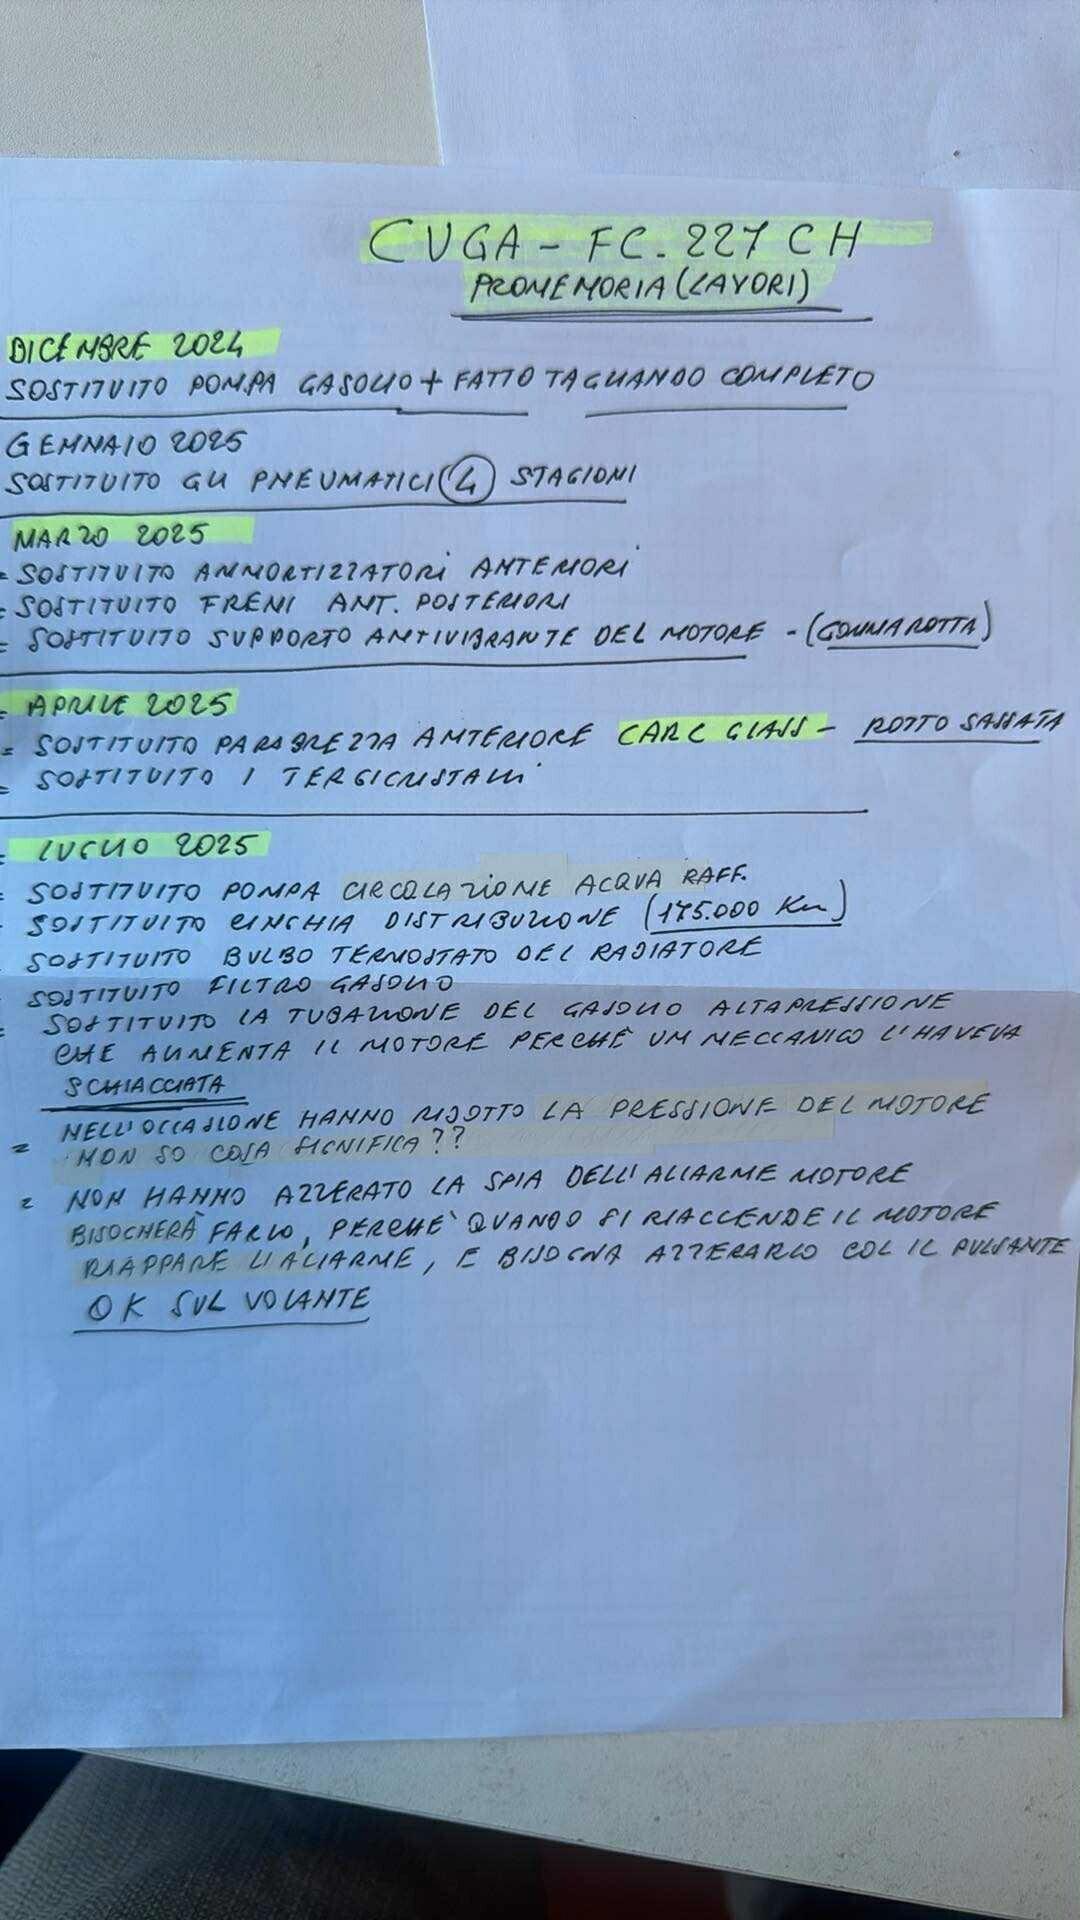 CUGA - FC. 227 CH
PROMEMORIA (LAVORI)
DICEMBRE 2024
SOSTITUITO POMPA GASOLIO + FATTO TAGLIANDO COMPLETO
GENNAIO 2025
SOSTITUITO GLI PNEUMATICI (4) STAGIONI
MARZO 2025
= SOSTITUITO AMMORTIZZATORI ANTERIORI
= SOSTITUITO FRENI ANT. POSTERIORI
= SOSTITUITO SUPPORTO ANTIVIBRANTE DEL MOTORE - (GOMMA ROTTA)
= APRILE 2025
= SOSTITUITO PARABREZZA ANTERIORE CARC GLASS - ROTTO SASSATA
= SOSTITUITO I TERGICRISTALLI
= LUGLIO 2025
- SOSTITUITO POMPA CIRCOLAZIONE ACQUA RAFF.
- SOSTITUITO CINGHIA DISTRIBUZIONE (175.000 Km)
- SOSTITUITO BULBO TERMOSTATO DEL RADIATORE
- SOSTITUITO FILTRO GASOLIO
= SOSTITUITO LA TUBAZIONE DEL GASOLIO ALTAPRESSIONE
CHE AUMENTA IL MOTORE PERCHÈ UN MECCANICO L'HAVEVA
SCHIACCIATA
= NELL'OCCASIONE HANNO RIDOTTO LA PRESSIONE DEL MOTORE
NON SO COSA SIGNIFICA??
= NON HANNO AZZERATO LA SPIA DELL'ALLARME MOTORE
BISOGNERÀ FARLO, PERCHE' QUANDO SI RIACCENDE IL MOTORE
RIAPPARE L'ALLARME, E BISOGNA AZZERARLO COL IL PULSANTE
OK SUL VOLANTE